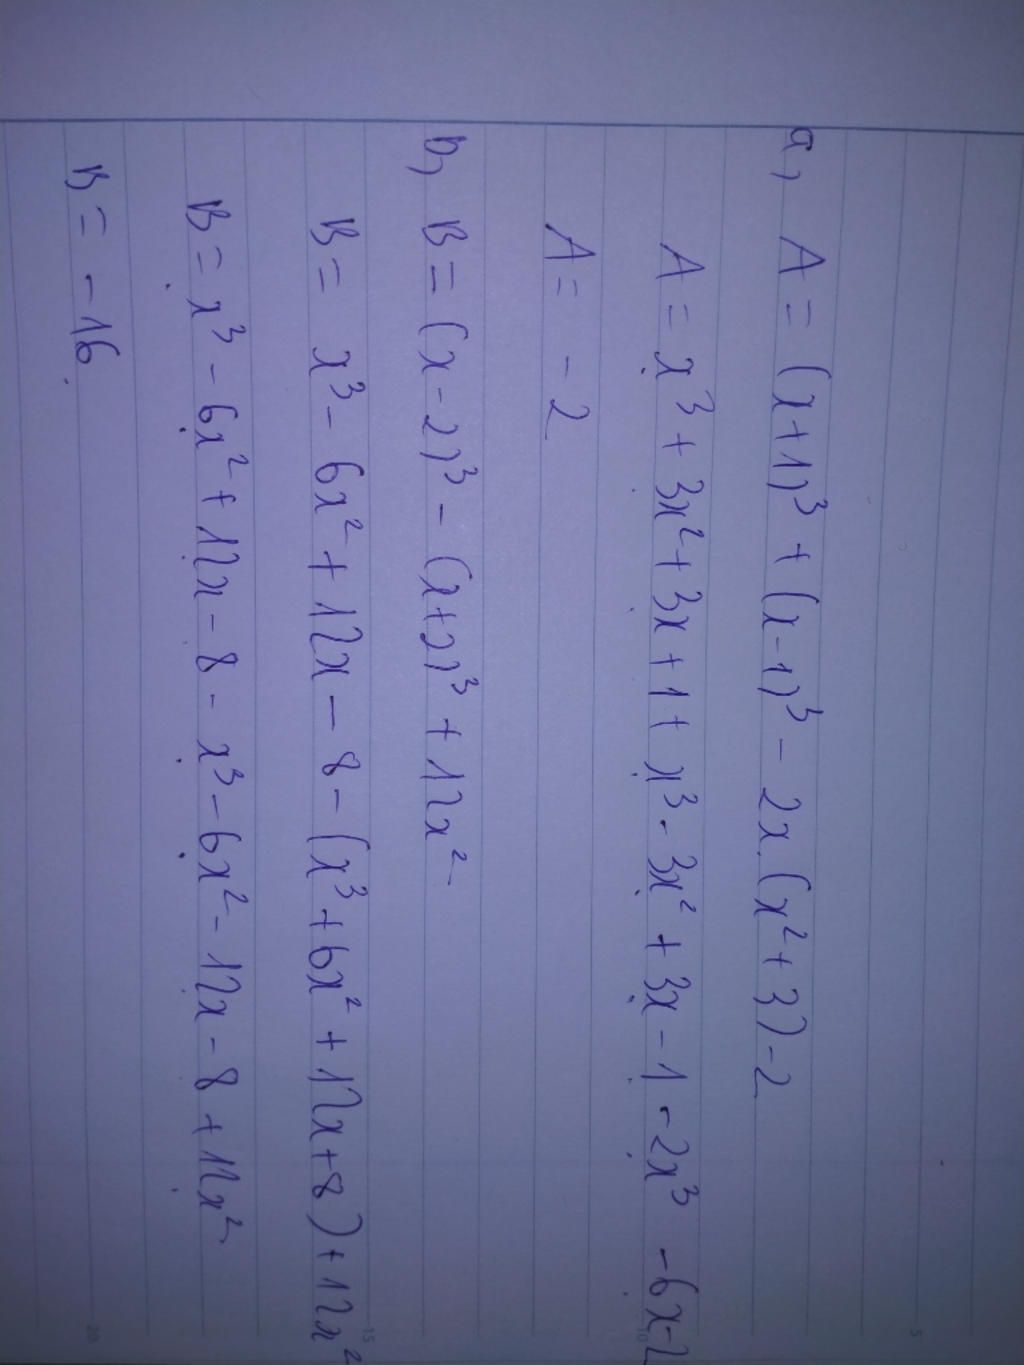 a, A = (x+1)³ + (x-1)³ - 2x.(x²+3)-2
A = x³ + 3x² + 3x + 1 + x³ - 3x² + 3x - 1 - 2x³ - 6x-2
A = - 2
b, B = (x-2)³ - (x+2)³ + 12x²
B = x³ - 6x² + 12x - 8 - (x³ + 6x² + 12x+8) + 12x²
B = x³ - 6x² + 12x - 8 - x³ - 6x² - 12x - 8 + 12x²
B = - 16
5
10
15
20